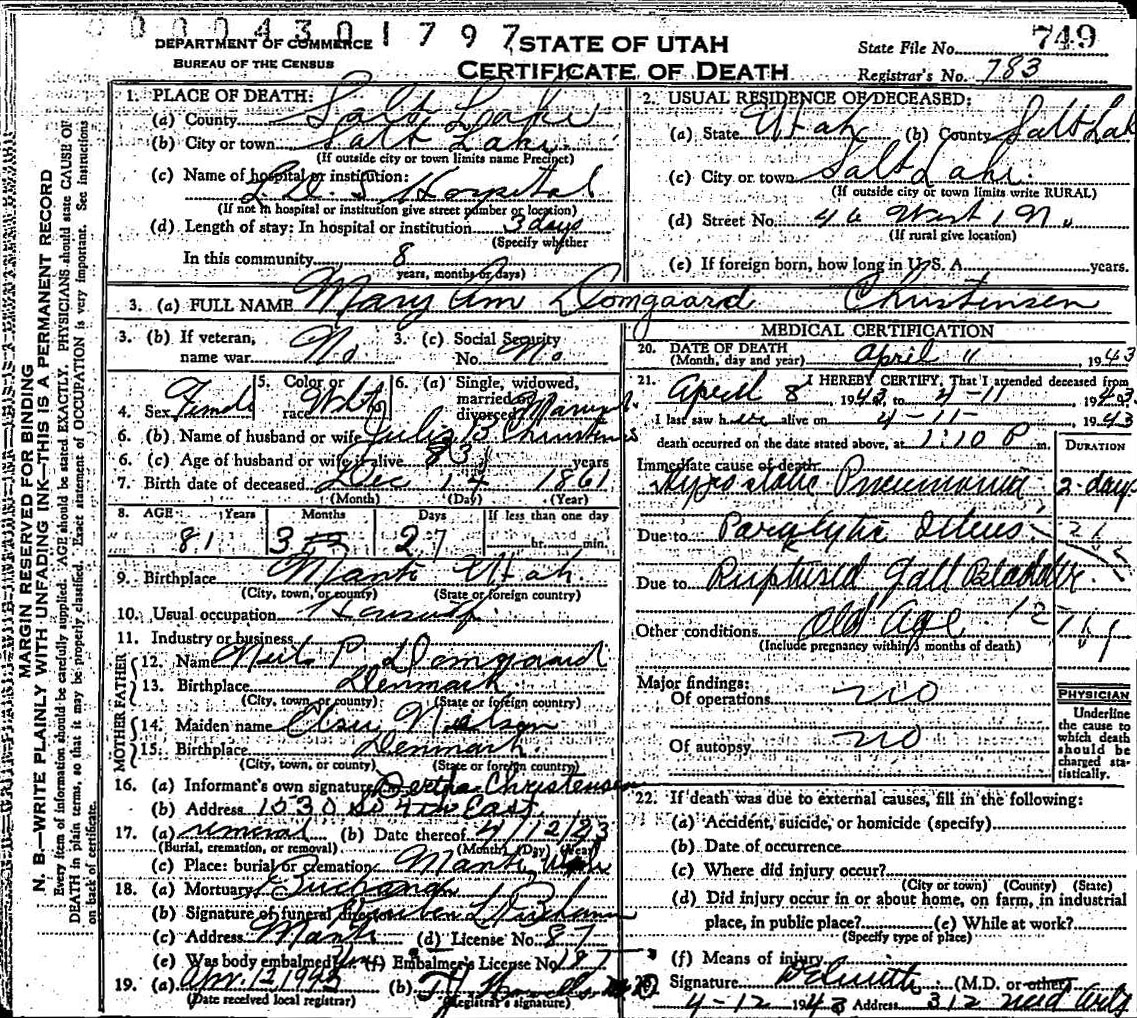 0 0 0 4 3 0 1 7 9 7
DEPARTMENT OF COMMERCE
BUREAU OF THE CENSUS
STATE OF UTAH
CERTIFICATE OF DEATH
State File No. 749
Registrar's No. 783
MARGIN RESERVED FOR BINDING
N. B.—WRITE PLAINLY WITH UNFADING INK—THIS IS A PERMANENT RECORD
Every item of information should be carefully supplied. AGE should be stated EXACTLY. PHYSICIANS should state CAUSE OF
DEATH in plain terms, so that it may be properly classified. Exact statement of OCCUPATION is very important. See instructions
on back of certificate.
1. PLACE OF DEATH:
(a) County Salt Lake
(b) City or town Salt Lake
(If outside city or town limits name Precinct)
(c) Name of hospital or institution:
L.D.S Hospital
(If not in hospital or institution give street number or location)
(d) Length of stay: In hospital or institution 3 days
(Specify whether
In this community 8
years, months or days)
2. USUAL RESIDENCE OF DECEASED:
(a) State Utah (b) County Salt Lak
(c) City or town Salt Lake
(If outside city or town limits write RURAL)
(d) Street No. 46 West 1 No.
(If rural give location)
(e) If foreign born, how long in U. S. A. years.
3. (a) FULL NAME Mary Ann Domgaard Christensen
3. (b) If veteran, name war No
3. (c) Social Security No. No.
4. Sex Female
5. Color or race White
6. (a) Single, widowed, married or divorced Married
6. (b) Name of husband or wife Julius B Christens
6. (c) Age of husband or wife if alive 83 years
7. Birth date of deceased Dec 14 1861
(Month) (Day) (Year)
8. AGE Years Months Days If less than one day
81 3 27 hr. min.
9. Birthplace Manti Utah
(City, town, or county) (State or foreign country)
10. Usual occupation Housewife
11. Industry or business
FATHER
12. Name Neils P. Domgaard
13. Birthplace Denmark
(City, town, or county) (State or foreign country)
MOTHER
14. Maiden name Else Nielson
15. Birthplace Denmark
(City, town, or county) (State or foreign country)
16. (a) Informant's own signature Bertha Christensen
(b) Address 1530 So 4th East
17. (a) removal (b) Date thereof 4/12/23
(Burial, cremation, or removal) (Month) (Day) (Year)
(c) Place: burial or cremation Manti Utah
18. (a) Mortuary Buchanan
(b) Signature of funeral director
(c) Address Manti (d) License No. 87
(e) Was body embalmed Yes (f) Embalmer's License No. 187
19. (a) Apr. 12 1943 (b)
(Date received local registrar) (Registrar's signature)
MEDICAL CERTIFICATION
20. DATE OF DEATH
(Month, day and year) April 11 1943
21. I HEREBY CERTIFY, That I attended deceased from
April 8, 1943, to 4-11 1943.
I last saw her alive on 4-11- 1943
death occurred on the date stated above, at 1:10 P m.
DURATION
Immediate cause of death
Hypostatic Pneumonia 2 days
Due to Paralytic Illeus
Due to Ruptured Gall Bladder
Other conditions Old Age
(Include pregnancy within 3 months of death)
Major findings:
Of operations no
Of autopsy no
PHYSICIAN
Underline
the cause to
which death
should be
charged sta-
tistically.
22. If death was due to external causes, fill in the following:
(a) Accident, suicide, or homicide (specify)
(b) Date of occurrence
(c) Where did injury occur?
(City or town) (County) (State)
(d) Did injury occur in or about home, on farm, in industrial
place, in public place? (e) While at work?
(Specify type of place)
(f) Means of injury
Signature (M.D. or other)
4-12 1943 Address 312 Med Arts